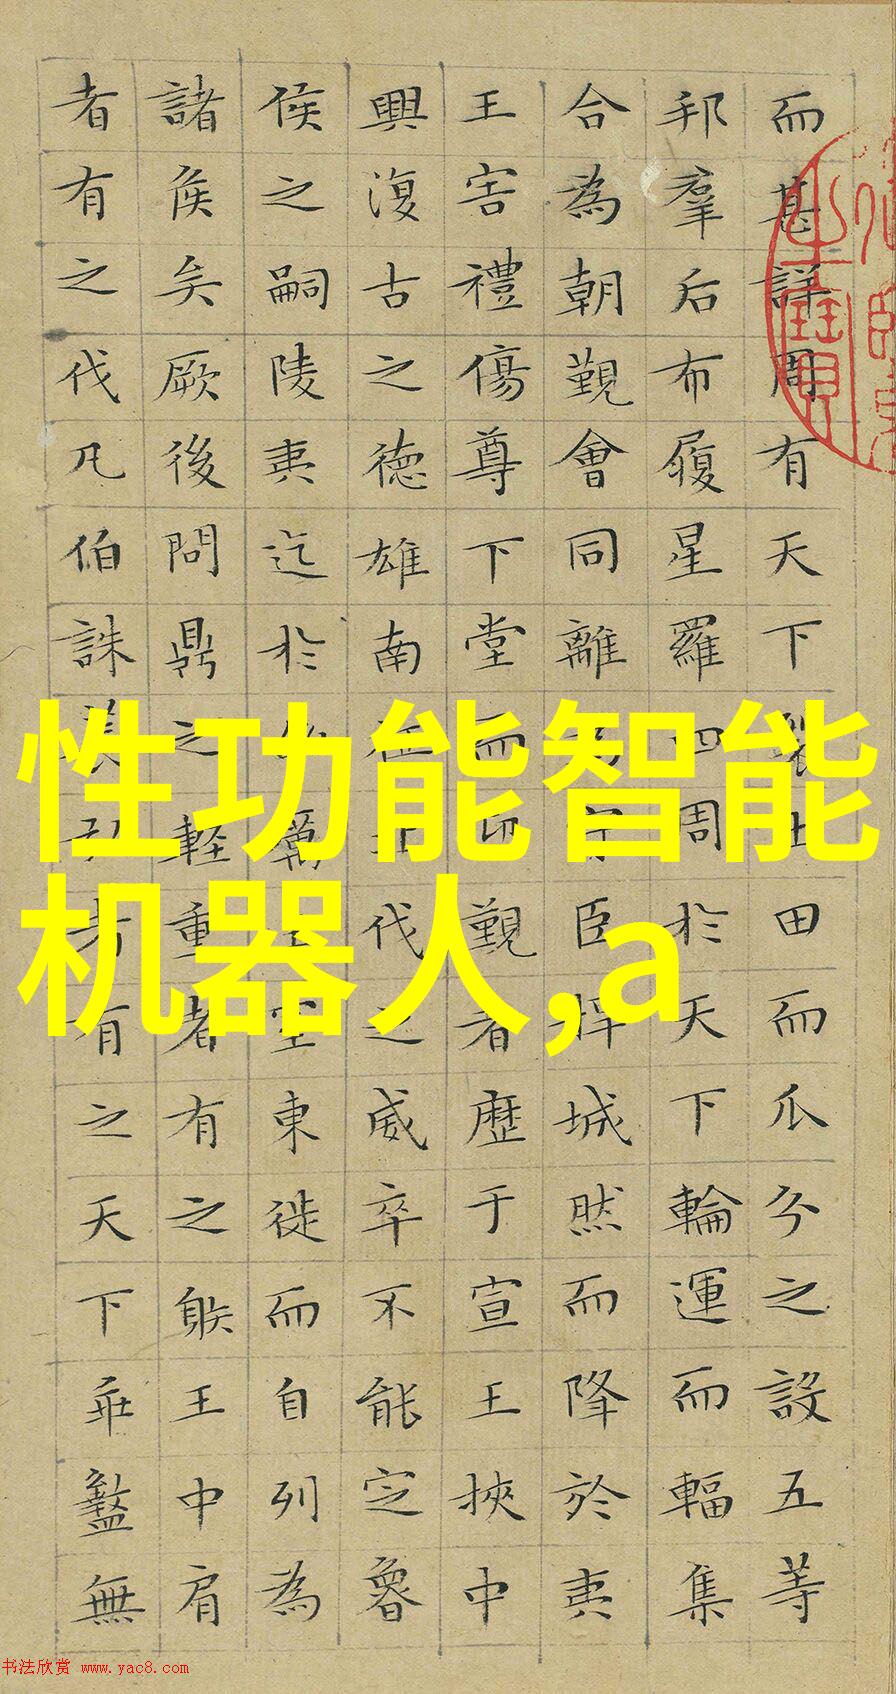 而甚詳周有天下裂土田而瓜分之設五等
邦羣后布履星羅四周於天下輪運而輻集
合為朝覲會同離為守臣扞城然而降於夷
王害禮傷尊下堂而迎覲者歷于宣王挾中
興復古之德雄南征北伐之威卒不能定魯
侯之嗣陵夷迄於幽厲王室東徙而自列為
諸侯矣厥後問鼎之輕重者有之䠶王中肩
者有之伐凡伯誅萇弘者有之天下乖盭無
性功能智能
机器人,a
书法欣赏 www.yac8.com